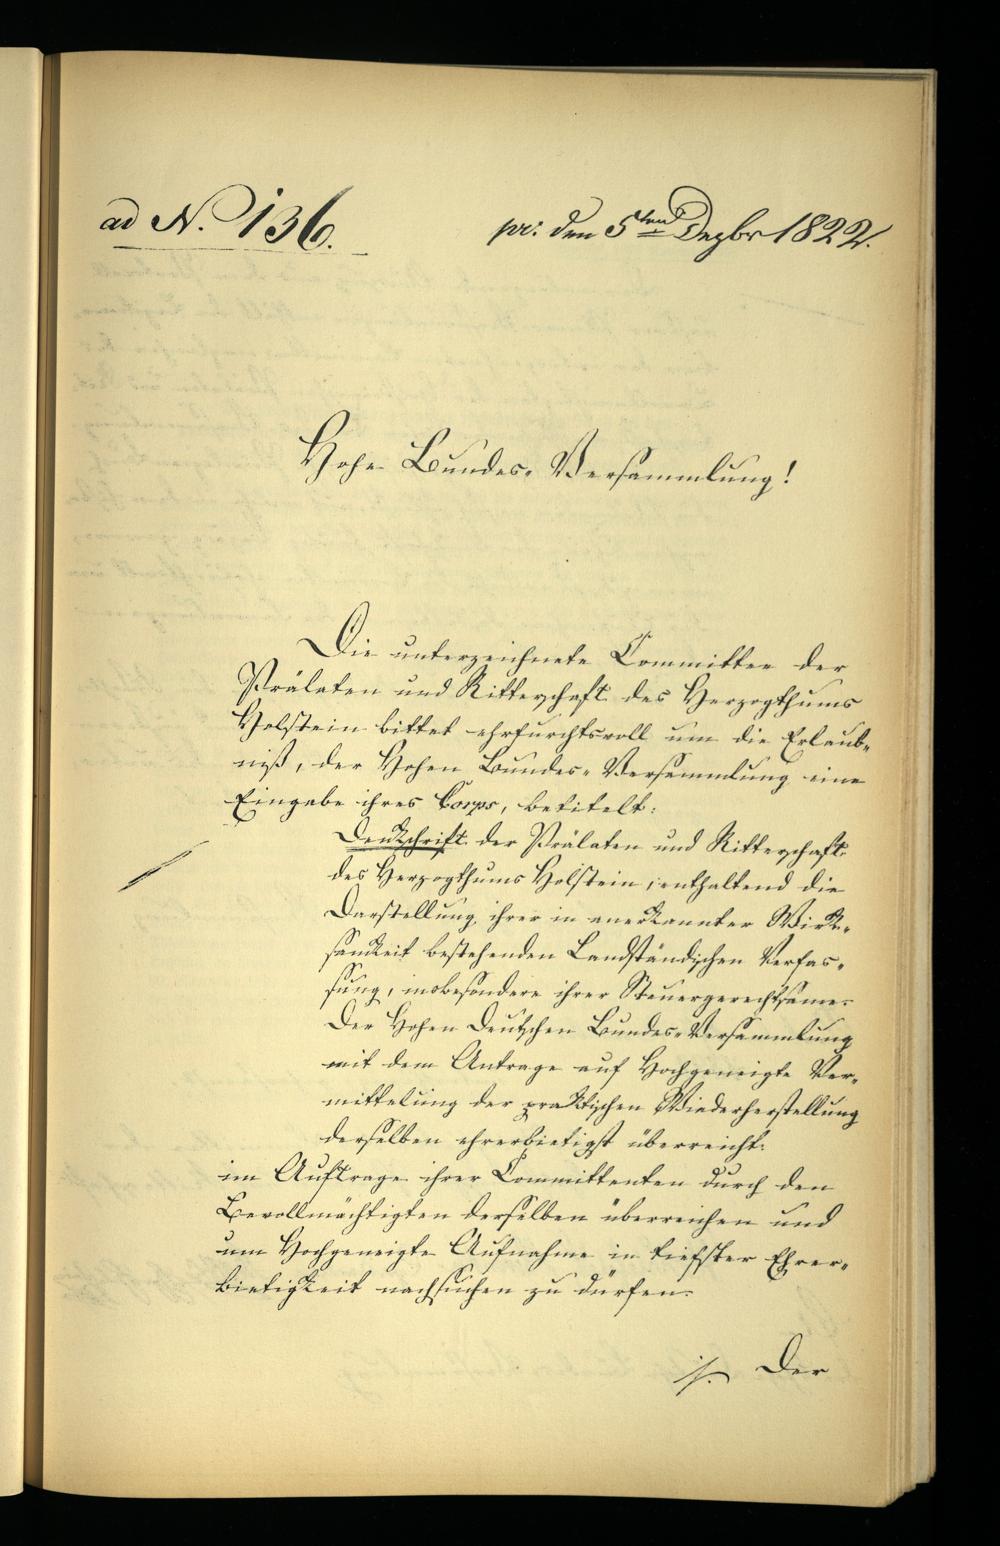 ad N. 136.
pr: den 5ten Dezbr 1822.
Hohe Bundes-Versammlung!
Die unterzeichnete Committee der
Prälaten und Ritterschaft des Herzogthums
Holstein bittet ehrfurchtsvoll um die Erlaub-
niß, der Hohen Bundes-Versammlung eine
Eingabe ihres Corps, betitelt:
Denkschrift der Prälaten und Ritterschaft
des Herzogthums Holstein, enthaltend die
Darstellung ihrer in anerkannter Wirk-
samkeit bestehenden Landständischen Verfas-
sung, insbesondere ihrer Steuergerechtsame.
Der Hohen Deutschen Bundes-Versammlung
mit dem Antrage auf Hochgeneigte Ver-
mittelung der praktischen Wiederherstellung
derselben ehrerbietigst überreicht.
im Auftrage ihrer Committenten durch den
Bevollmächtigten derselben überreichen und
um Hochgeneigte Aufnahme in tiefster Ehrer-
bietigkeit nachsuchen zu dürfen.
Der